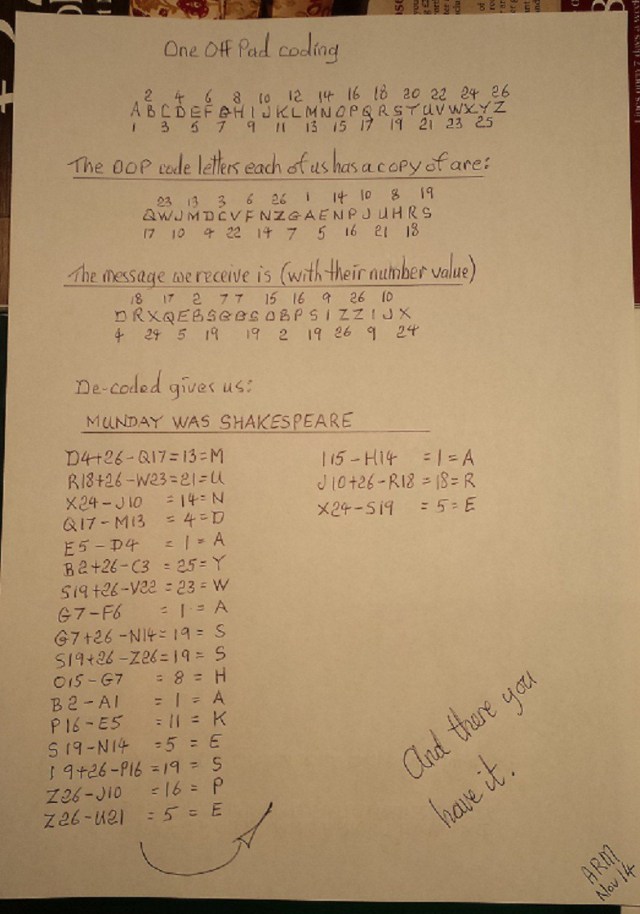 One Off Pad coding
2 4 6 8 10 12 14 16 18 20 22 24 26
A B C D E F G H I J K L M N O P Q R S T U V W X Y Z
1 3 5 7 9 11 13 15 17 19 21 23 25
The OOP code letters each of us has a copy of are:
23 13 3 6 26 1 14 10 8 19
Q W J M D C V F N Z G A E N P J U H R S
17 10 4 22 14 7 5 16 21 18
The message we receive is (with their number value)
18 17 2 7 7 15 16 9 26 10
D R X Q E B S G G S O B P S I Z Z I J X
4 24 5 19 19 2 19 26 9 24
De-coded gives us:
MUNDAY WAS SHAKESPEARE
D4+26-Q17=13=M
R18+26-W23=21=U
X24-J10 =14=N
Q17-M13 = 4=D
E5-D4 =1=A
B2+26-C3 =25=Y
S19+26-V22 =23=W
G7-F6 =1=A
G7+26-N14=19=S
S19+26-Z26=19=S
O15-G7 =8=H
B2-A1 =1=A
P16-E5 =11=K
S19-N14 =5=E
I9+26-P16=19=S
Z26-J10 =16=P
Z26-U21 =5=E
I15-H14 =1=A
J10+26-R18=18=R
X24-S19 =5=E
And there you
have it.
ARM
Nov 14